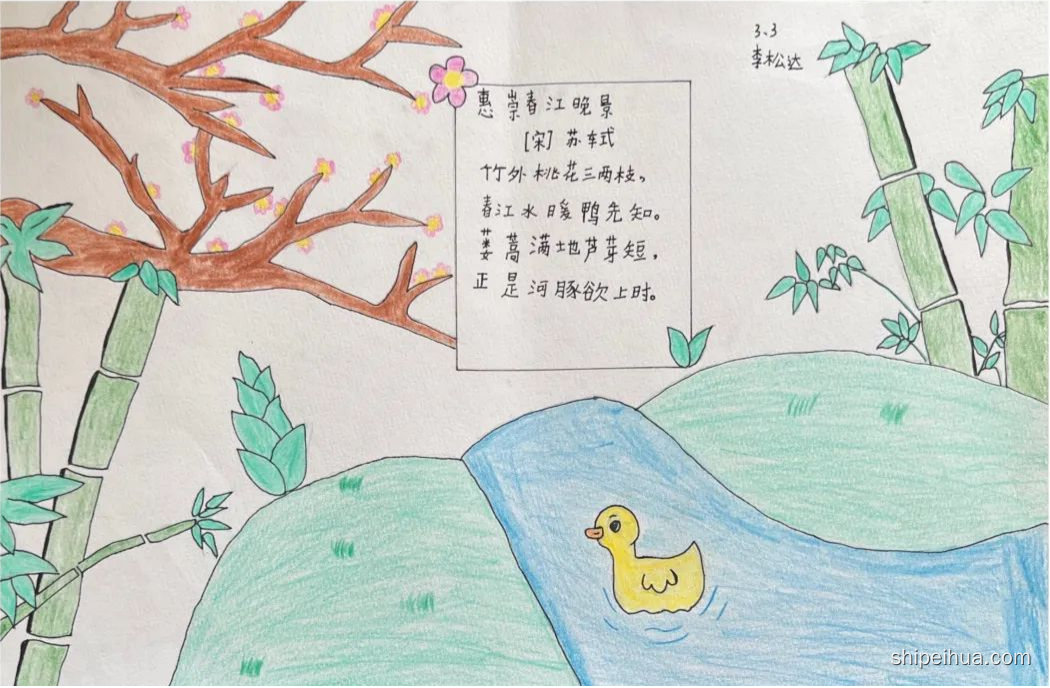 3.3
李松达
惠崇春江晚景
[宋] 苏轼
竹外桃花三两枝,
春江水暖鸭先知。
蒌蒿满地芦芽短,
正是河豚欲上时。
shipeihua.com